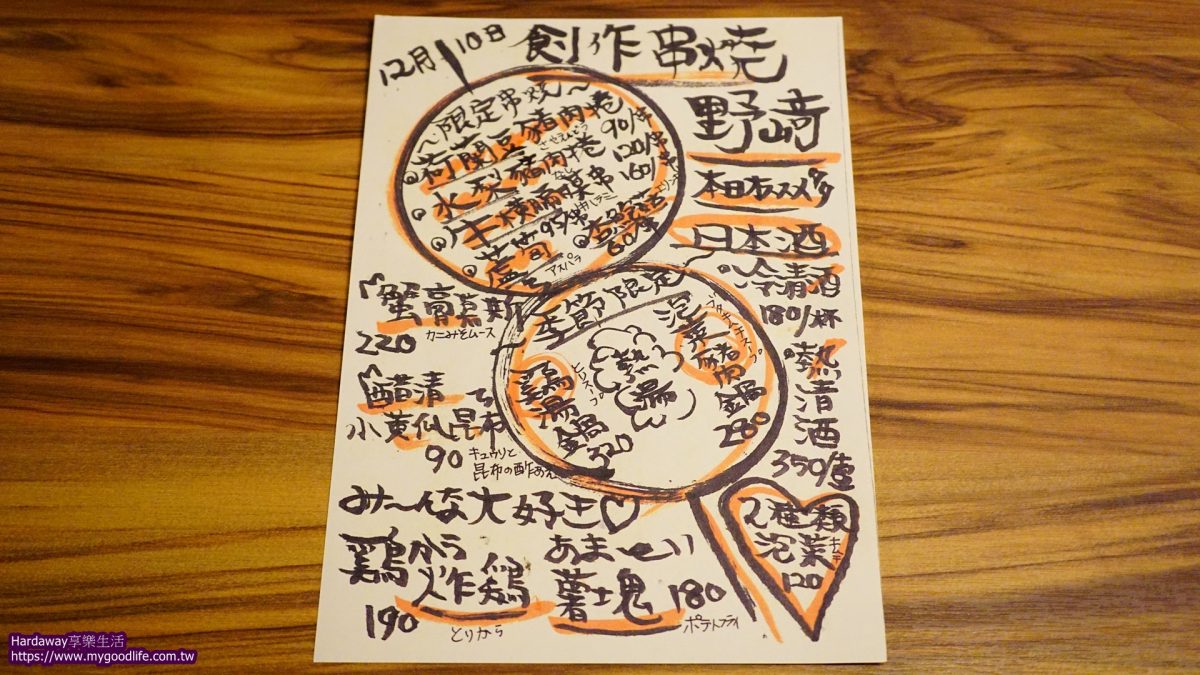 12月10日
創作串燒
野崎
本日オススメ
～限定串燒～
荷蘭豆豬肉捲 90/串
水梨豬肉捲 120/串
牛橫膈膜串 160/串
蘆筍 95/串
アスパラ
杏鮑菇
60/串
日本酒
冷清酒
180/杯
熱清酒
350/壺
季節限定
熱湯
泡菜豬肉鍋
280
ブタキムチスープ
鶏湯鍋
320
とりスープ
蟹膏慕斯
カニみそムース
220
醋漬
小黃瓜昆布
90
キュウリと
昆布の酢あえ
み～んな大好き♡
鶏から
炸鶏
190
とりから
あま～い
薯塊 180
ポテトフライ
2種類
泡菜
キムチ
120
Hardaway享樂生活
https://www.mygoodlife.com.tw